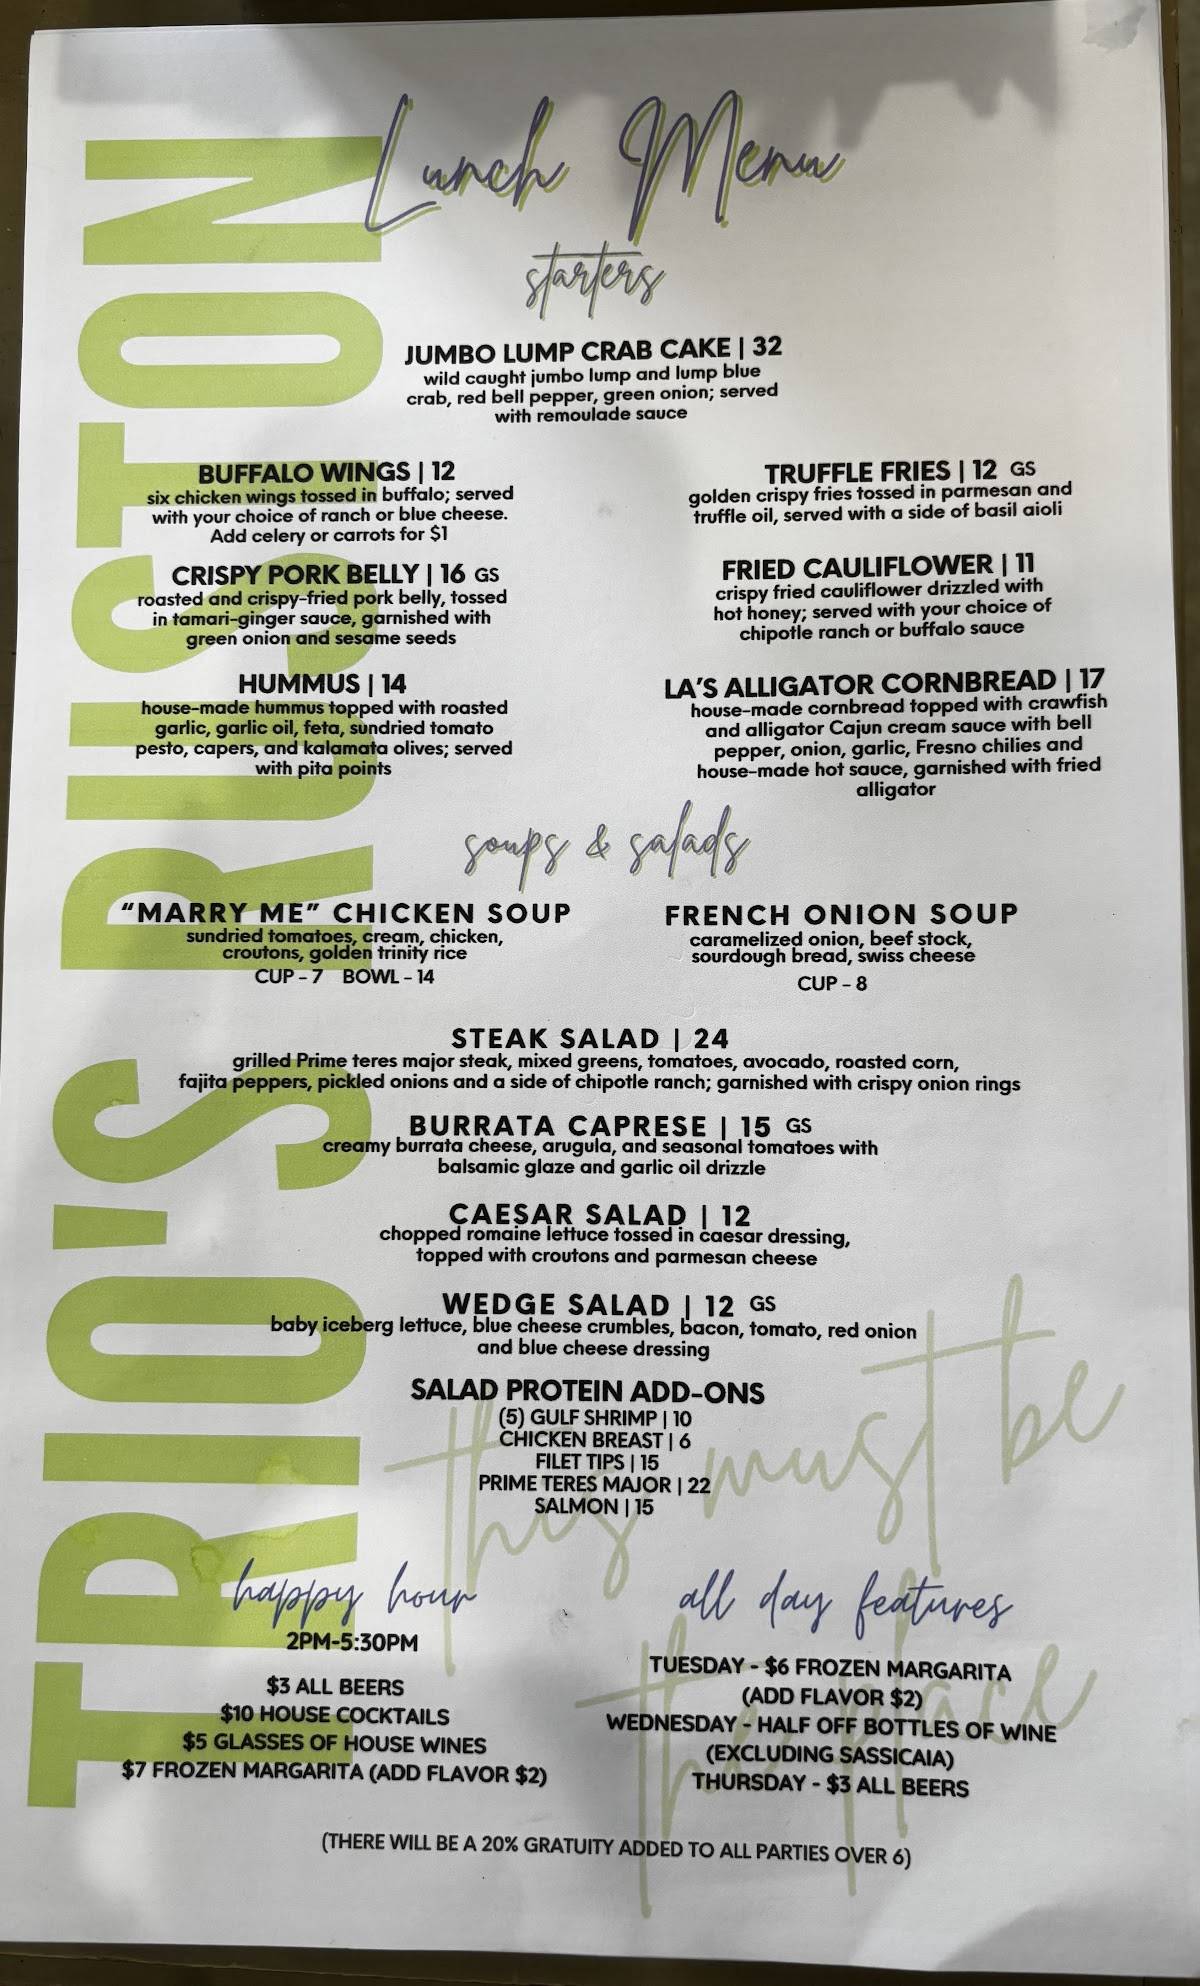 Lunch Menu
TRIO'S RUSTON
starters
JUMBO LUMP CRAB CAKE | 32
wild caught jumbo lump and lump blue
crab, red bell pepper, green onion; served
with remoulade sauce
BUFFALO WINGS | 12
six chicken wings tossed in buffalo; served
with your choice of ranch or blue cheese.
Add celery or carrots for $1
CRISPY PORK BELLY | 16 GS
roasted and crispy-fried pork belly, tossed
in tamari-ginger sauce, garnished with
green onion and sesame seeds
HUMMUS | 14
house-made hummus topped with roasted
garlic, garlic oil, feta, sundried tomato
pesto, capers, and kalamata olives; served
with pita points
TRUFFLE FRIES | 12 GS
golden crispy fries tossed in parmesan and
truffle oil, served with a side of basil aioli
FRIED CAULIFLOWER | 11
crispy fried cauliflower drizzled with
hot honey; served with your choice of
chipotle ranch or buffalo sauce
LA'S ALLIGATOR CORNBREAD | 17
house-made cornbread topped with crawfish
and alligator Cajun cream sauce with bell
pepper, onion, garlic, Fresno chilies and
house-made hot sauce, garnished with fried
alligator
soups & salads
"MARRY ME" CHICKEN SOUP
sundried tomatoes, cream, chicken,
croutons, golden trinity rice
CUP - 7 BOWL - 14
FRENCH ONION SOUP
caramelized onion, beef stock,
sourdough bread, swiss cheese
CUP - 8
STEAK SALAD | 24
grilled Prime teres major steak, mixed greens, tomatoes, avocado, roasted corn,
fajita peppers, pickled onions and a side of chipotle ranch; garnished with crispy onion rings
BURRATA CAPRESE | 15 GS
creamy burrata cheese, arugula, and seasonal tomatoes with
balsamic glaze and garlic oil drizzle
CAESAR SALAD | 12
chopped romaine lettuce tossed in caesar dressing,
topped with croutons and parmesan cheese
WEDGE SALAD | 12 GS
baby iceberg lettuce, blue cheese crumbles, bacon, tomato, red onion
and blue cheese dressing
SALAD PROTEIN ADD-ONS
(5) GULF SHRIMP | 10
CHICKEN BREAST | 6
FILET TIPS | 15
PRIME TERES MAJOR | 22
SALMON | 15
this must be
the place
happy hour
2PM-5:30PM
$3 ALL BEERS
$10 HOUSE COCKTAILS
$5 GLASSES OF HOUSE WINES
$7 FROZEN MARGARITA (ADD FLAVOR $2)
all day features
TUESDAY - $6 FROZEN MARGARITA
(ADD FLAVOR $2)
WEDNESDAY - HALF OFF BOTTLES OF WINE
(EXCLUDING SASSICAIA)
THURSDAY - $3 ALL BEERS
(THERE WILL BE A 20% GRATUITY ADDED TO ALL PARTIES OVER 6)